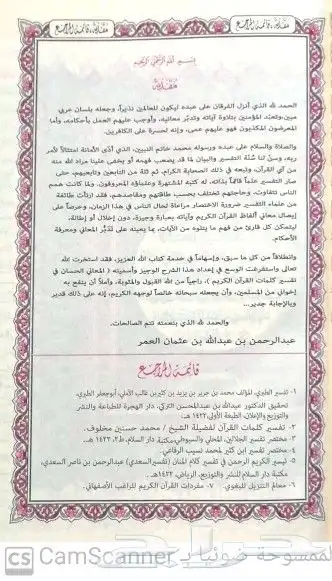 مقدمة وقائمة المراجع
مقدمة وقائمة المراجع
بسم الله الرحمن الرحيم
مقدمة
الحمد لله الذي أنزل الفرقان على عبده ليكون للعالمين نذيراً، وجعله بلسان عربي
مبين وتعبد المؤمنين بتلاوة آياته وتدبر معانيه، وأوجب عليهم العمل بأحكامه، وأما
المعرضون المكذبون فهو عليهم عمى، وإنه لحسرة على الكافرين.
والصلاة والسلام على عبده ورسوله محمد خاتم النبيين، الذي أدى الأمانة امتثالاً لأمر
ربه، وسن لنا سنة التفسير والبيان لما قد يصعب فهمه أو يخفى علينا مراد الله منه
من آي القرآن، وتبعه في ذلك الصحابة الكرام، ثم ثلة من التابعين وتابعيهم، حتى
صار التفسير علماً قائماً بذاته، له كتبه المشتهرة وعلماؤه المعروفون. ولما كانت همم
الناس تتفاوت، وحاجتهم تختلف بحسب طاقتهم ومقاصدهم، فقد ارتأت طائفة
من علماء التفسير ضرورة الاختصار مراعاة لحال الناس في هذا الزمان، وحرصاً على
إيصال معاني ألفاظ القرآن الكريم وآياته بعبارة وجيزة، دون إخلال أو إطالة،
ليتمكن كل قارئ من فهم ما يتلوه من الآيات، بما يعينه على تدبر المعاني ومعرفة
الأحكام.
وانطلاقاً من كل ما سبق، وإسهاماً في خدمة كتاب الله العزيز، فقد استخرت الله
تعالى واستفرغت الوسع في إعداد هذا الشرح الوجيز وأسميته ( المعاني الحسان في
تفسير كلمات القرآن الكريم )، راجياً من الله القبول والمثوبة، وآملاً أن ينفع به
إخواني من المسلمين، وأن يجعله سبحانه خالصاً لوجهه الكريم، إنه على ذلك قدير
وبالإجابة جدير...
والحمد لله الذي بنعمته تتم الصالحات.
عبدالرحمن بن عبدالله بن عثمان العمر
قائمة المراجع
١- تفسير الطبري، المؤلف محمد بن جرير بن يزيد بن كثير بن غالب الآملي، أبوجعفر الطبري،
تحقيق الدكتور عبدالله بن عبدالمحسن التركي، دار الهجرة للطباعة والنشر
والتوزيع والإعلان، الطبعة الأولى، ١٤٢٢هـ.
٢- تفسير كلمات القرآن لفضيلة الشيخ / محمد حسنين مخلوف.
٣- مختصر تفسير الجلالين، المحلي والسيوطي، مكتبة دار السلام، ط٢، ١٤٢٢هـ.
٤- مختصر تفسير ابن كثير لمحمد نسيب الرفاعي.
٥- تيسير الكريم الرحمن في تفسير كلام المنان (تفسير السعدي) عبدالرحمن بن ناصر السعدي،
مكتبة دار السلام للنشر والتوزيع، الرياض، ١٤٢٢هـ.
٦- معالم التنزيل للبغوي. ٧- مفردات القرآن الكريم للراغب الأصفهاني.
الممسوحة ضوئيا بـ CamScanner
CS